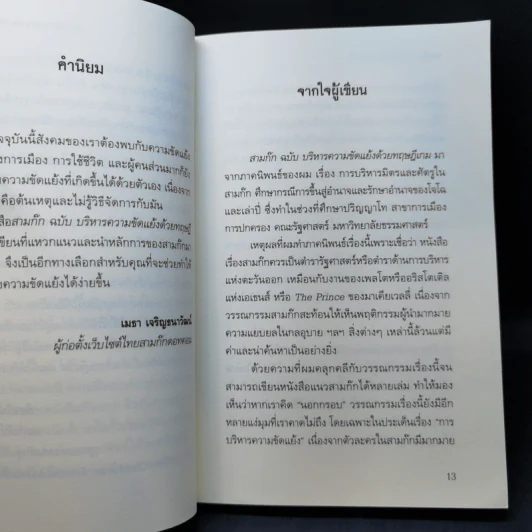 คำนิยม
จจุบันนี้สังคมของเราต้องพบกับความขัดแย้ง
งการเมือง การใช้ชีวิต และผู้คนส่วนมากก็ยัง
ความขัดแย้งที่เกิดขึ้นได้ด้วยตัวเอง เนื่องจาก
คือต้นเหตุและไม่รู้วิธีจัดการกับมัน
สือสามก๊ก ฉบับ บริหารความขัดแย้งด้วยทฤษฎี
เขียนที่แหวกแนวและนำหลักการของสามก๊กมา
จึงเป็นอีกทางเลือกสำหรับคุณที่จะช่วยทำให้
งความขัดแย้งได้ง่ายขึ้น
เมธา เจริญธนาวัฒน์
ผู้ก่อตั้งเว็บไซต์ไทยสามก๊กดอทคอม
จากใจผู้เขียน
สามก๊ก ฉบับ บริหารความขัดแย้งด้วยทฤษฎีเกม มา
จากภาคนิพนธ์ของผม เรื่อง การบริหารมิตรและศัตรูใน
สามก๊ก ศึกษากรณีการขึ้นสู่อำนาจและรักษาอำนาจของโจโฉ
และเล่าปี่ ซึ่งทำในช่วงที่ศึกษาปริญญาโท สาขาการเมือง
การปกครอง คณะรัฐศาสตร์ มหาวิทยาลัยธรรมศาสตร์
เหตุผลที่ผมทำภาคนิพนธ์เรื่องนี้เพราะเชื่อว่า หนังสือ
เรื่องสามก๊กควรเป็นตำรารัฐศาสตร์หรือตำราด้านการบริหาร
แห่งตะวันออก เหมือนกับงานของเพลโตหรืออริสโตเติล
แห่งเอเธนส์ หรือ The Prince ของมาเคียเวลลี่ เนื่องจาก
วรรณกรรมสามก๊กสะท้อนให้เห็นพฤติกรรมผู้นำมากมาย
ความแยบยลในกลอุบาย ฯลฯ สิ่งต่างๆ เหล่านี้ล้วนแต่มี
ค่าและน่าค้นหาเป็นอย่างยิ่ง
ด้วยความที่ผมคลุกคลีกับวรรณกรรมเรื่องนี้จน
สามารถเขียนหนังสือแนวสามก๊กได้หลายเล่ม ทำให้มอง
เห็นว่าหากเราคิด “นอกกรอบ” วรรณกรรมเรื่องนี้ยังมีอีก
หลายแง่มุมที่เราคาดไม่ถึง โดยเฉพาะในประเด็นเรื่อง “การ
บริหารความขัดแย้ง” เนื่องจากตัวละครในสามก๊กมีมากมาย
13